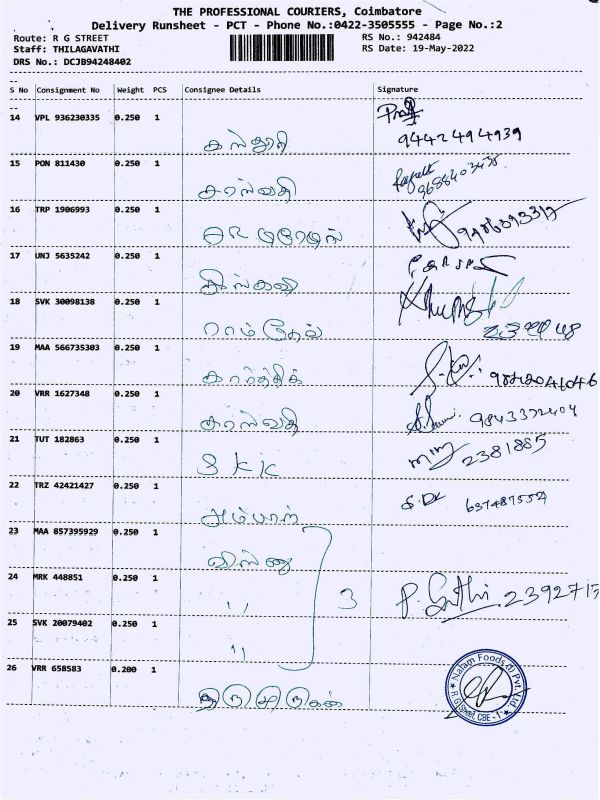 THE PROFESSIONAL COURIERS, Coimbatore
Delivery Runsheet - PCT - Phone No.:0422-3505555 - Page No.:2
Route: R G STREET
RS No.: 942484
Staff: THILAGAVATHI
RS Date: 19-May-2022
DRS No.: DCJB94248402
S No Consignment No Weight PCS Consignee Details Signature
14 VPL 936230335 0.250 1
கஸ்தூரி 9442494939
15 PON 811430 0.250 1
சரஸ்வதி
16 TRP 1906993 0.250 1
17 UNJ 5635242 0.250 1
18 SVK 30098138 0.250 1
19 MAA 566735303 0.250 1
கார்த்திக்
20 VRR 1627348 0.250 1
சரஸ்வதி 9843372404
21 TUT 182863 0.250 1
S K K 2381885
22 TRZ 42421427 0.250 1
அம்பாள் 637487552
23 MAA 857395929 0.250 1
விஸ்ணு
24 MRK 448851 0.250 1
" 3 2392715
25 SVK 20079402 0.250 1
"
26 VRR 658583 0.200 1
Nalam Foods (I) Pvt Ltd
R.G. Street, CBE - 1